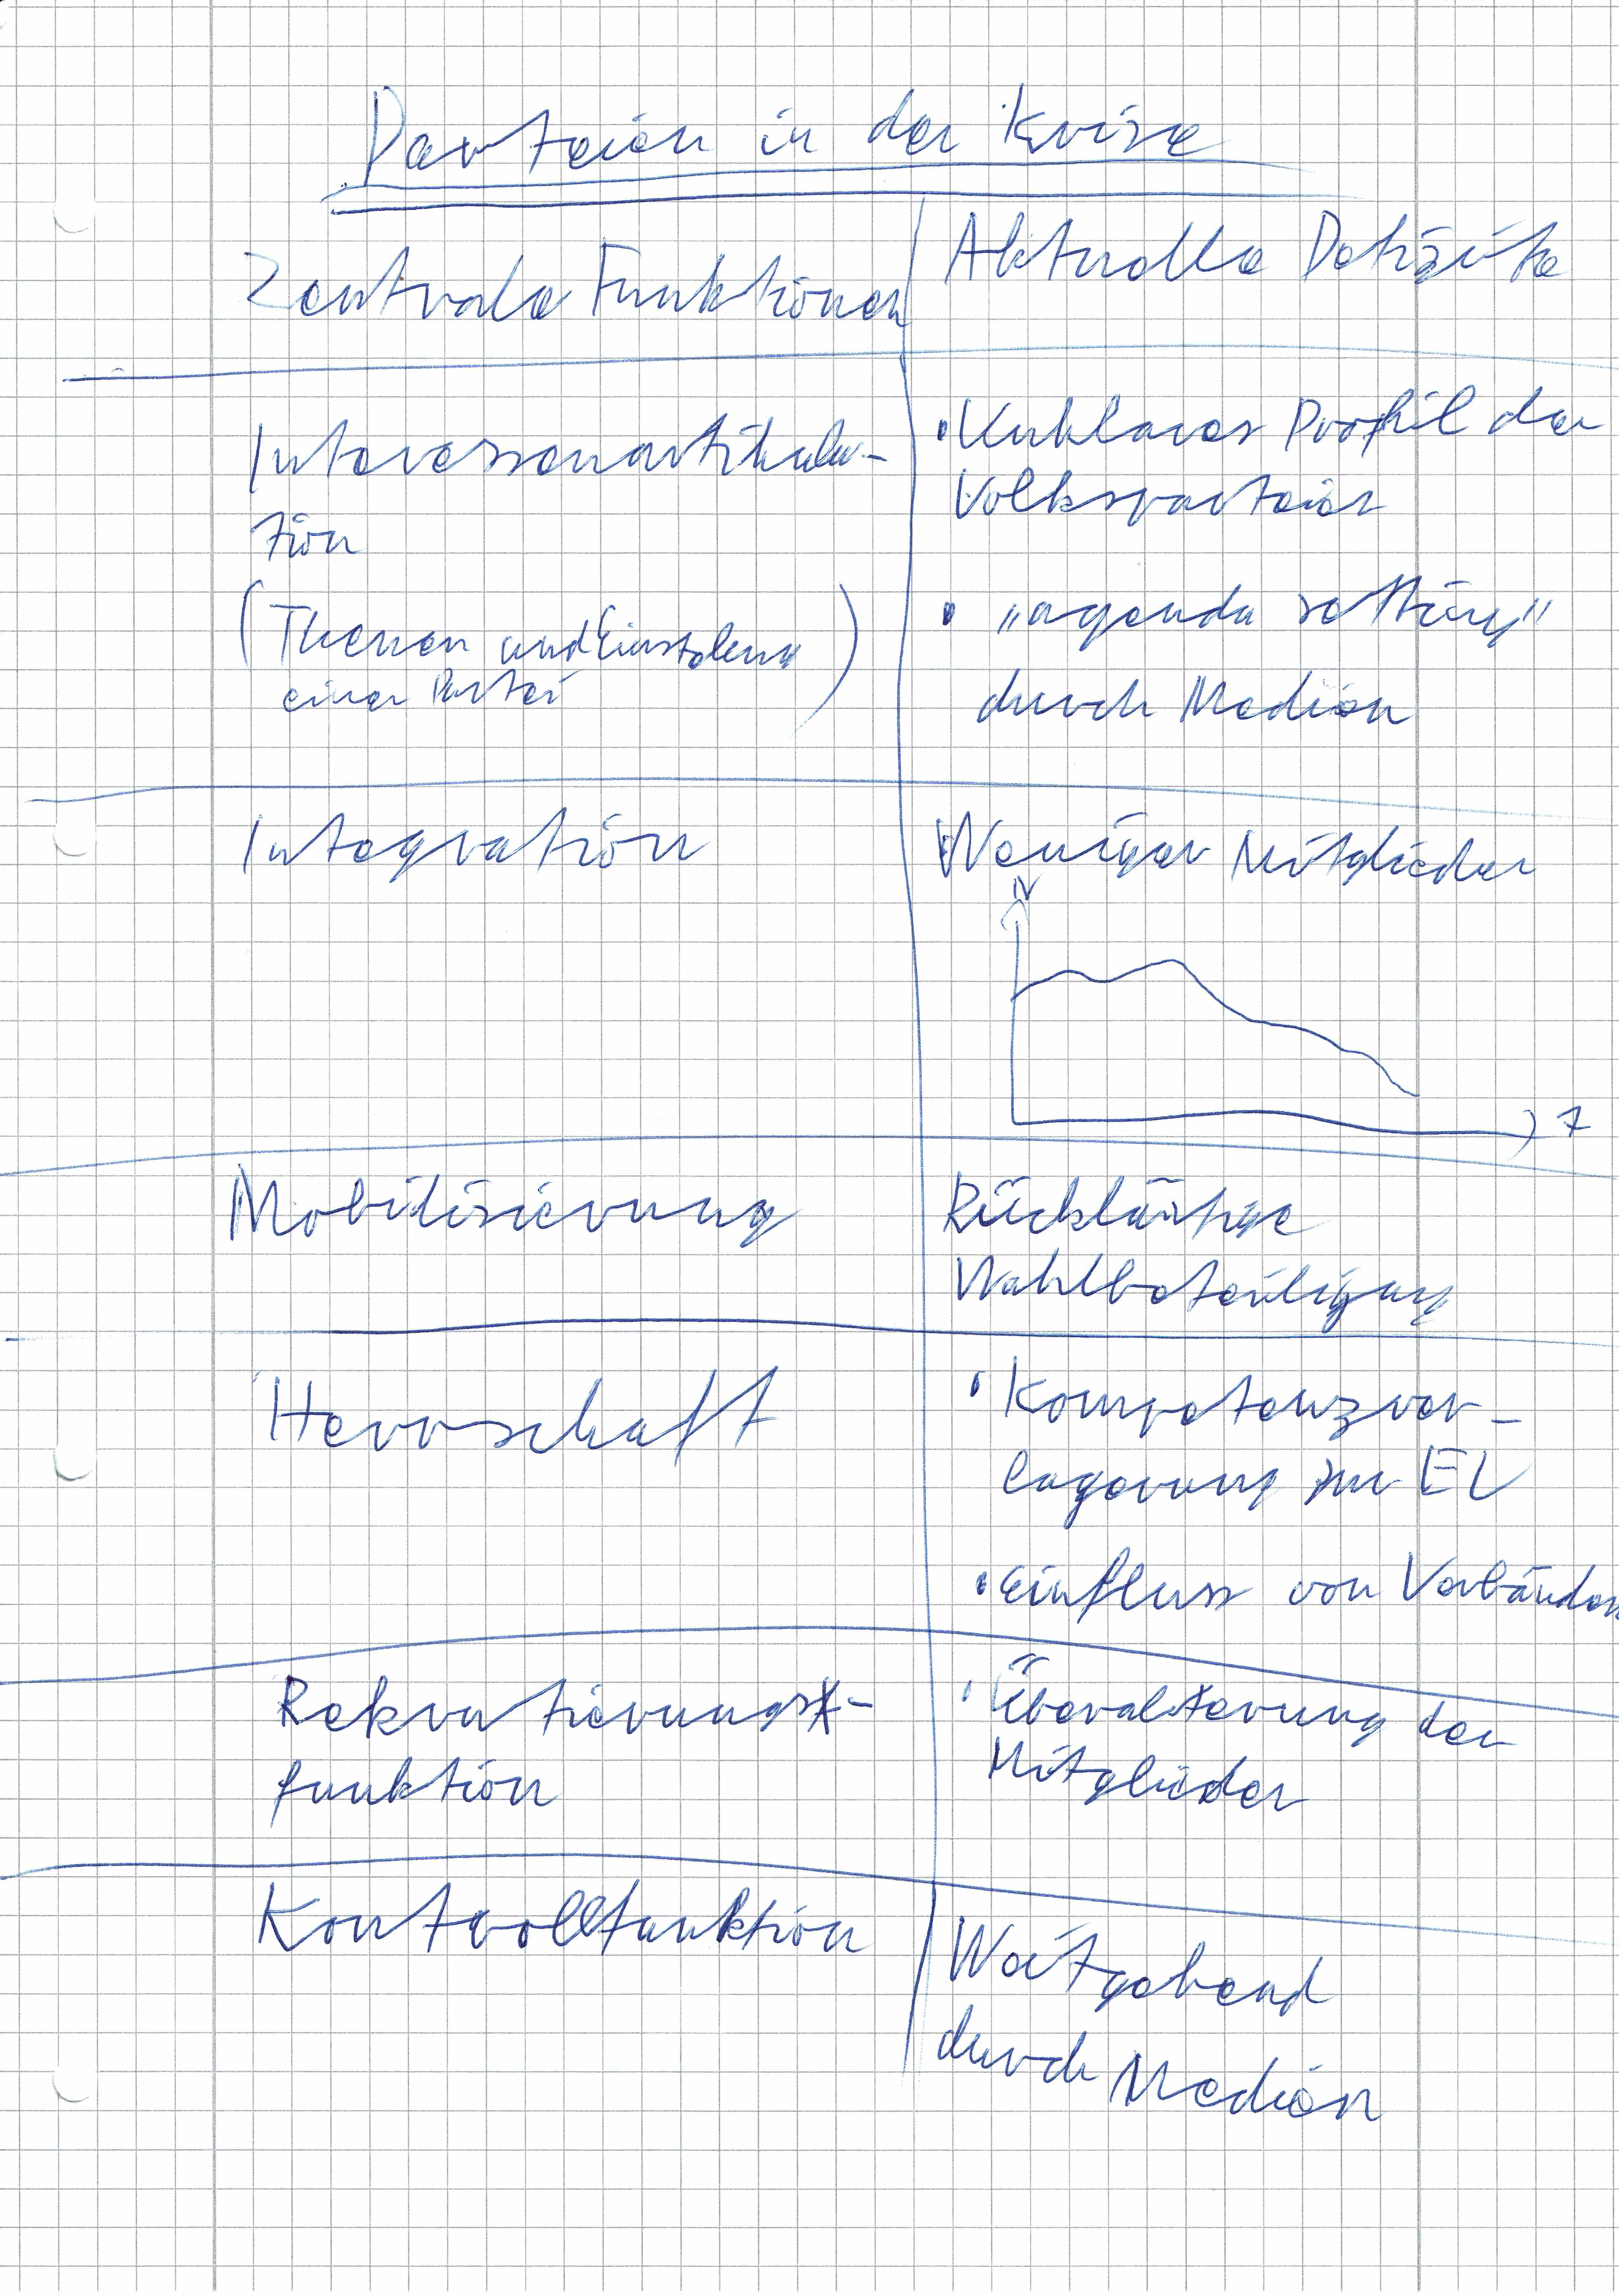 Parteien in der Krise
Zentrale Funktionen
Aktuelle Defizite
Interessenartikula-
tion
(Themen und Einstellung
einer Partei)
• Unklares Profil der
Volksparteien
• „agenda setting"
durch Medien
Integration
Weniger Mitglieder
N
t
Mobilisierung
Rückläufige
Wahlbeteiligung
Herrschaft
• Kompetenzver-
lagerung zur EU
• Einfluss von Verbänden
Rekrutierungs-
funktion
• Überalterung der
Mitglieder
Kontrollfunktion
Weitgehend
durch Medien